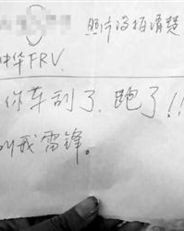 照片没拍清楚
中华FRV.
你车刮了,跑了!!
叫我雷锋。